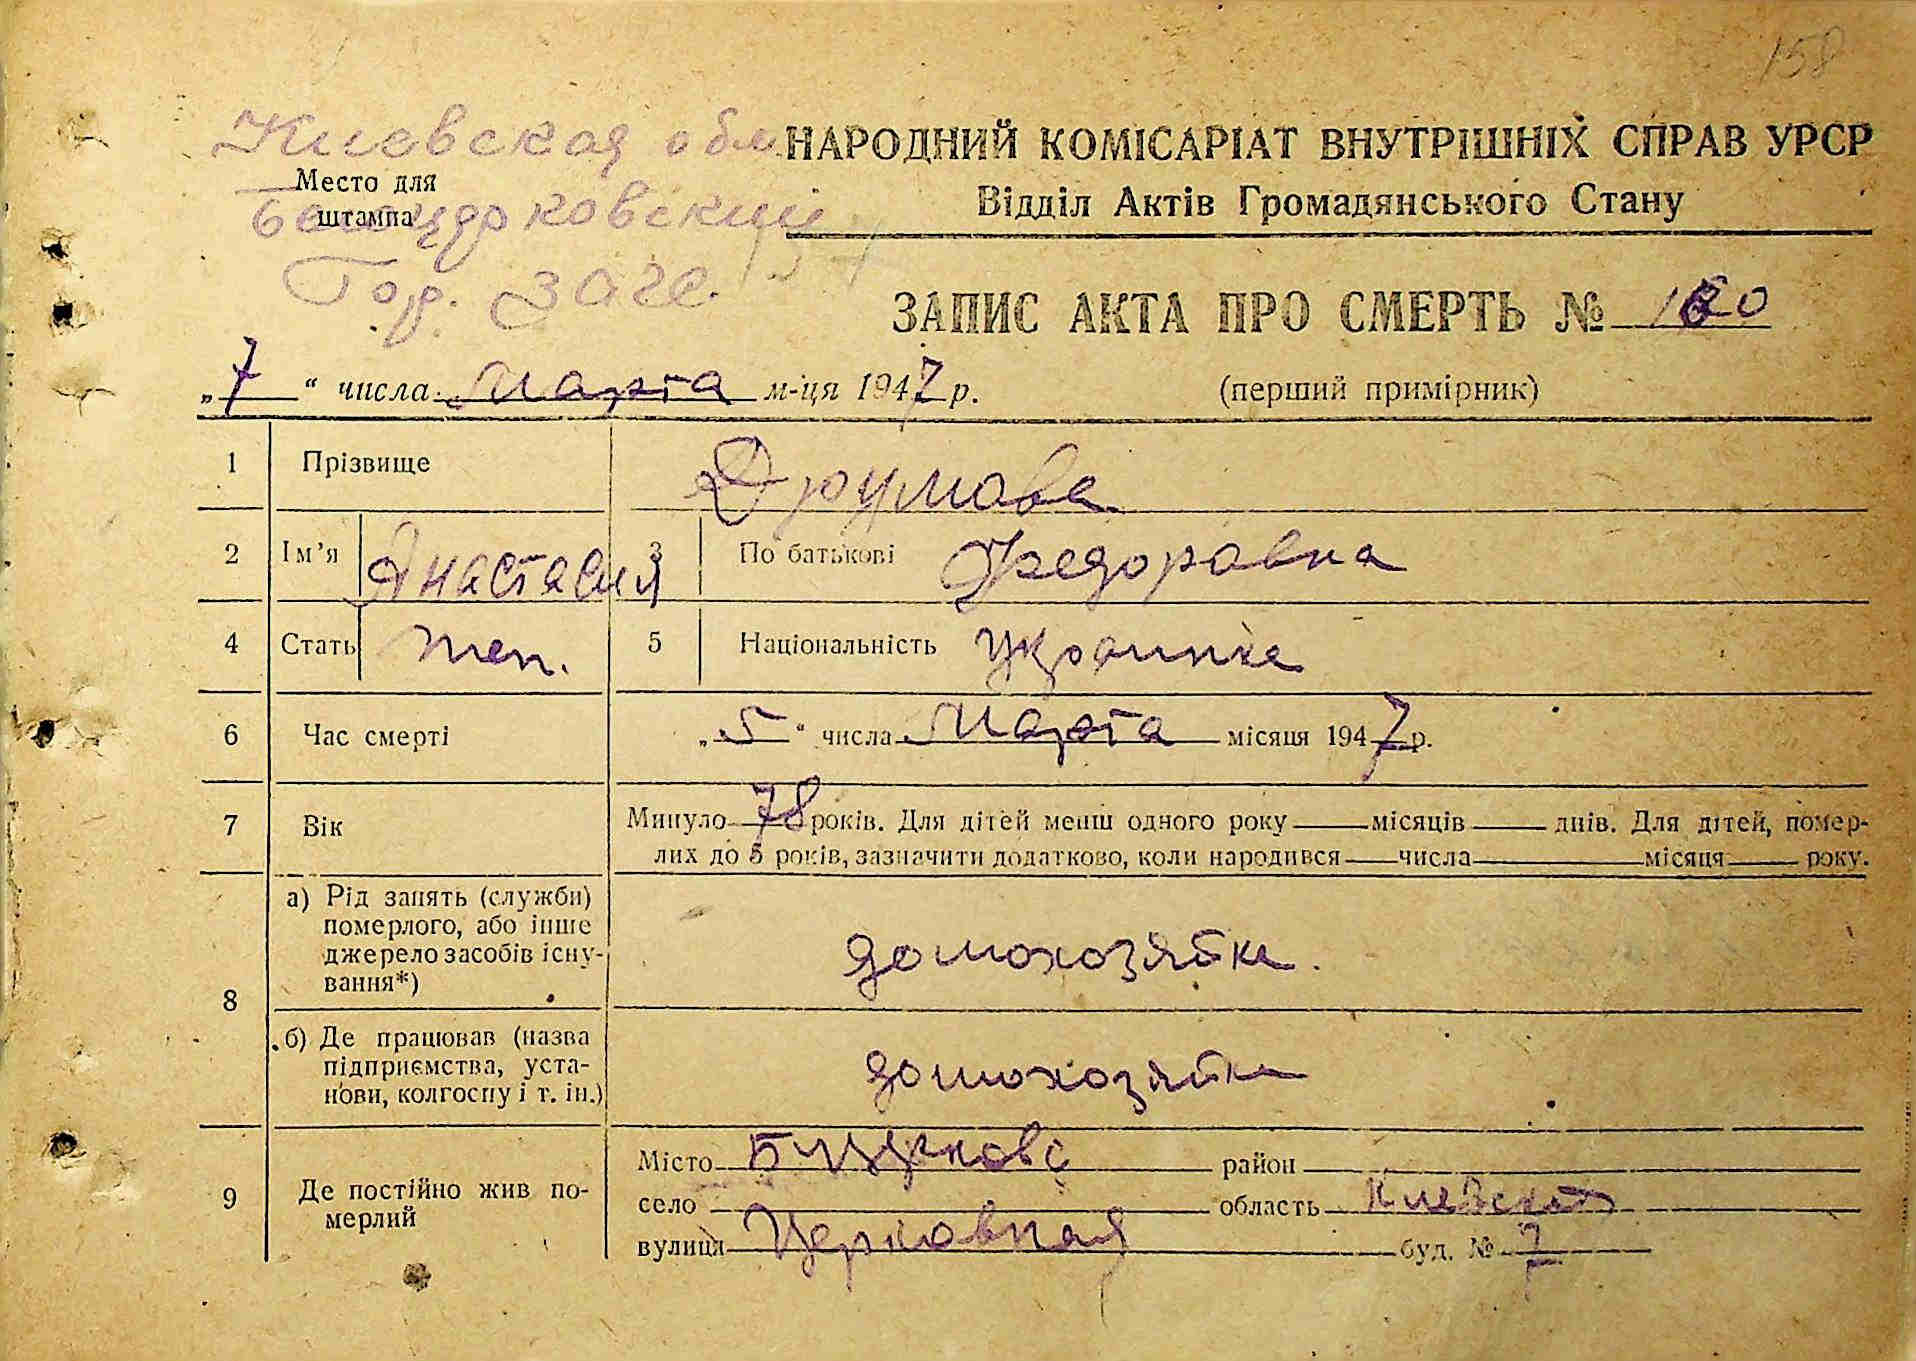 158
Киевская обл.
НАРОДНИЙ КОМІСАРІАТ ВНУТРІШНІХ СПРАВ УРСР
Место для
штампа
Белоцерковский
Відділ Актів Громадянського Стану
Гор. ЗАГС.
ЗАПИС АКТА ПРО СМЕРТЬ №
„7“ числа Марта м-ця 1947 р. (перший примірник)
1 Прізвище
2 Ім’я Анастасия 3 По батькові Федоровна
4 Стать жен. 5 Національність Украинка
6 Час смерті „5“ числа Марта місяця 1947 р.
7 Вік Минуло 78 років. Для дітей менш одного року місяців днів. Для дітей, помер-
лих до 5 років, зазначити додатково, коли народився числа місяця року.
8 а) Рід занять (служби)
померлого, або інше
джерело засобів існу-
вання*)
домохозяйка.
б) Де працював (назва
підприємства, уста-
нови, колгоспу і т. ін.)
домохозяйка
9 Де постійно жив по-
мерлий
Місто Б Церковь район
село область Киевская
вулиця Церковная буд. № 7